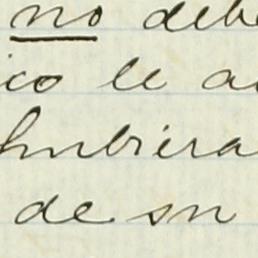 no debe
ico le a
hubiera
de su